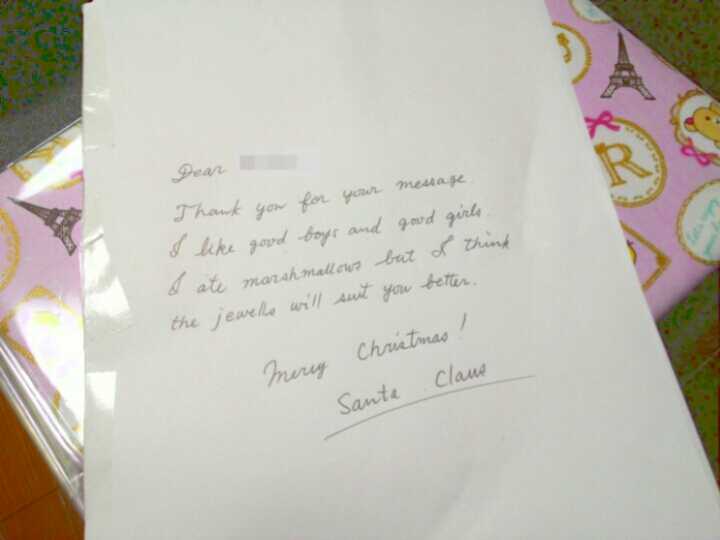 Dear
Thank you for your message.
I like good boys and good girls.
I ate marshmallows but I think
the jewells will suit you better.
Merry Christmas!
Santa Claus
R